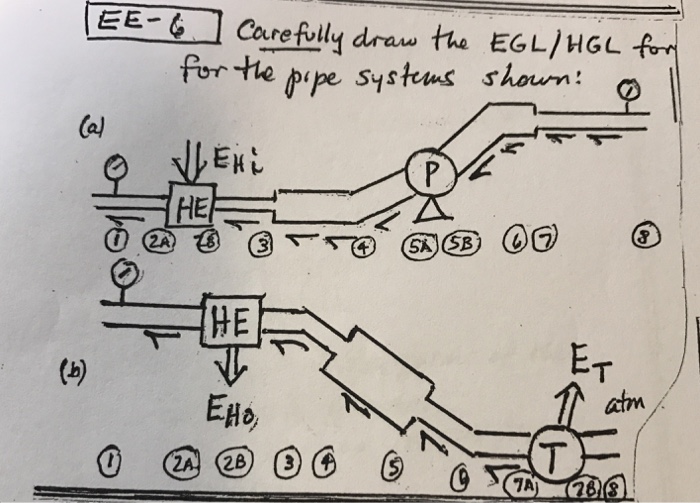 EE-6 Carefully draw the EGL/HGL for
for the pipe systems shown:
(a)
EHi
HE
P
1 2A 2B 3 4 5A 5B 6 7 8
HE
(b)
EHo
ET
atm
T
1 2A 2B 3 4 5 6 7A 7B 8